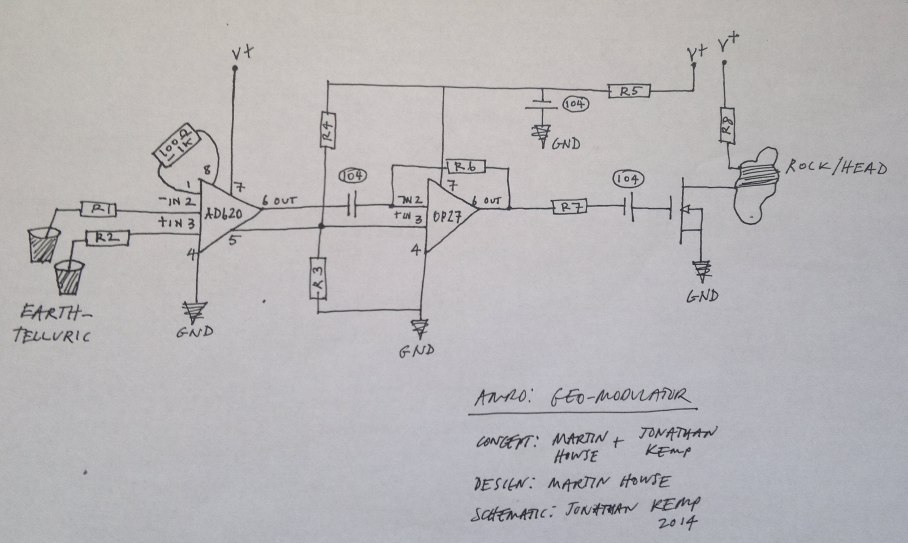 V+
V+
V+
R4
104
R5
R8
GND
100Ω
-1K
104
R6
104
ROCK/HEAD
8
1
7
7
-IN 2
AD620
6 OUT
-IN 2
OP27
6 OUT
R7
R1
+IN 3
+IN 3
R2
5
4
4
R3
EARTH-
TELLURIC
GND
GND
GND
GEO-MODULATOR
CONCEPT: MARTIN + JONATHAN
HOWSE KEMP
DESIGN: MARTIN HOWSE
SCHEMATIC: JONATHAN KEMP
2014